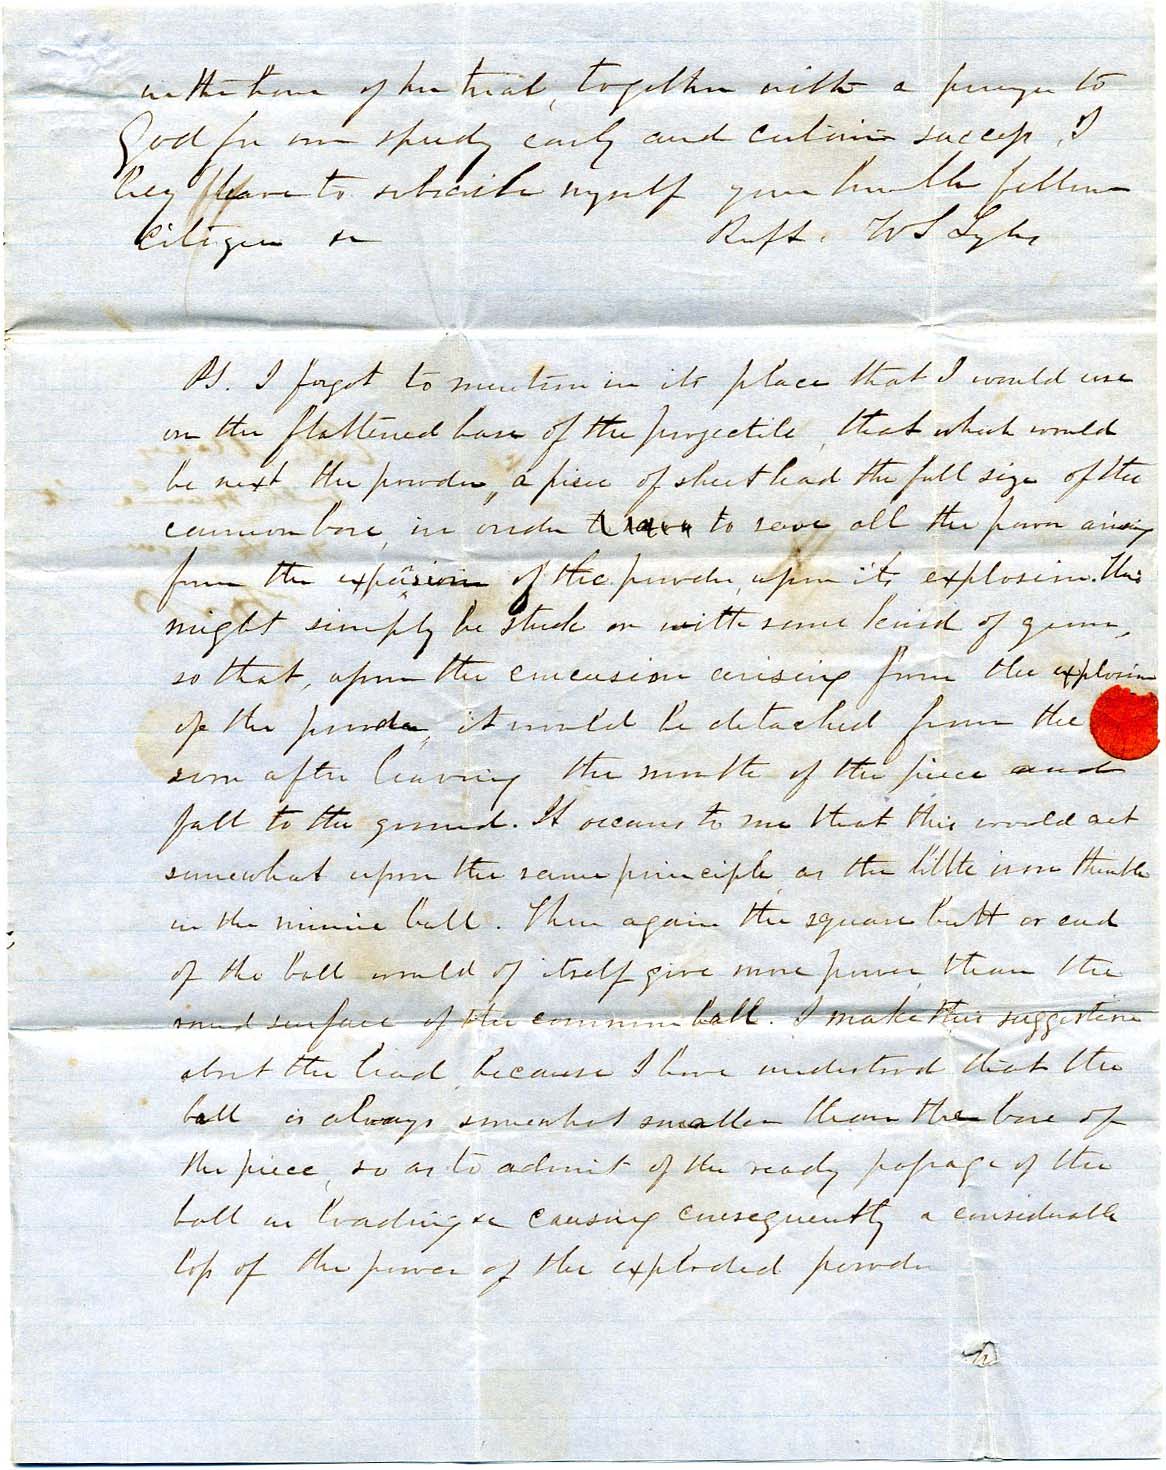 in the hour of her trial, together with a prayer to
God for our speedy early and certain success, I
beg leave to subscribe myself your humble fellow
Citizen &c Respt. W S Lyles
PS. I forgot to mention in its place that I would use
on the flattened base of the projectile, that which would
be next the powder, a piece of sheet lead the full size of the
cannon bore, in order to save all the power arising
from the expansion of the powder, upon its explosion. This
might simply be stuck on with some kind of gum,
so that, upon the concussion arising from the explosion
of the powder, it would be detached from the
soon after leaving the mouth of the piece and
fall to the ground. It occurs to me that this would act
somewhat upon the same principle, as the little iron thimble
in the minnie ball. Then again the square butt or end
of the ball would of itself give more power, than the
round surface of the common ball. I make this suggestion
about the lead, because I have understood that the
ball is always somewhat smaller than the bore of
the piece, so as to admit of the ready passage of the
ball in loading &c causing consequently a considerable
loss of the power of the exploded powder